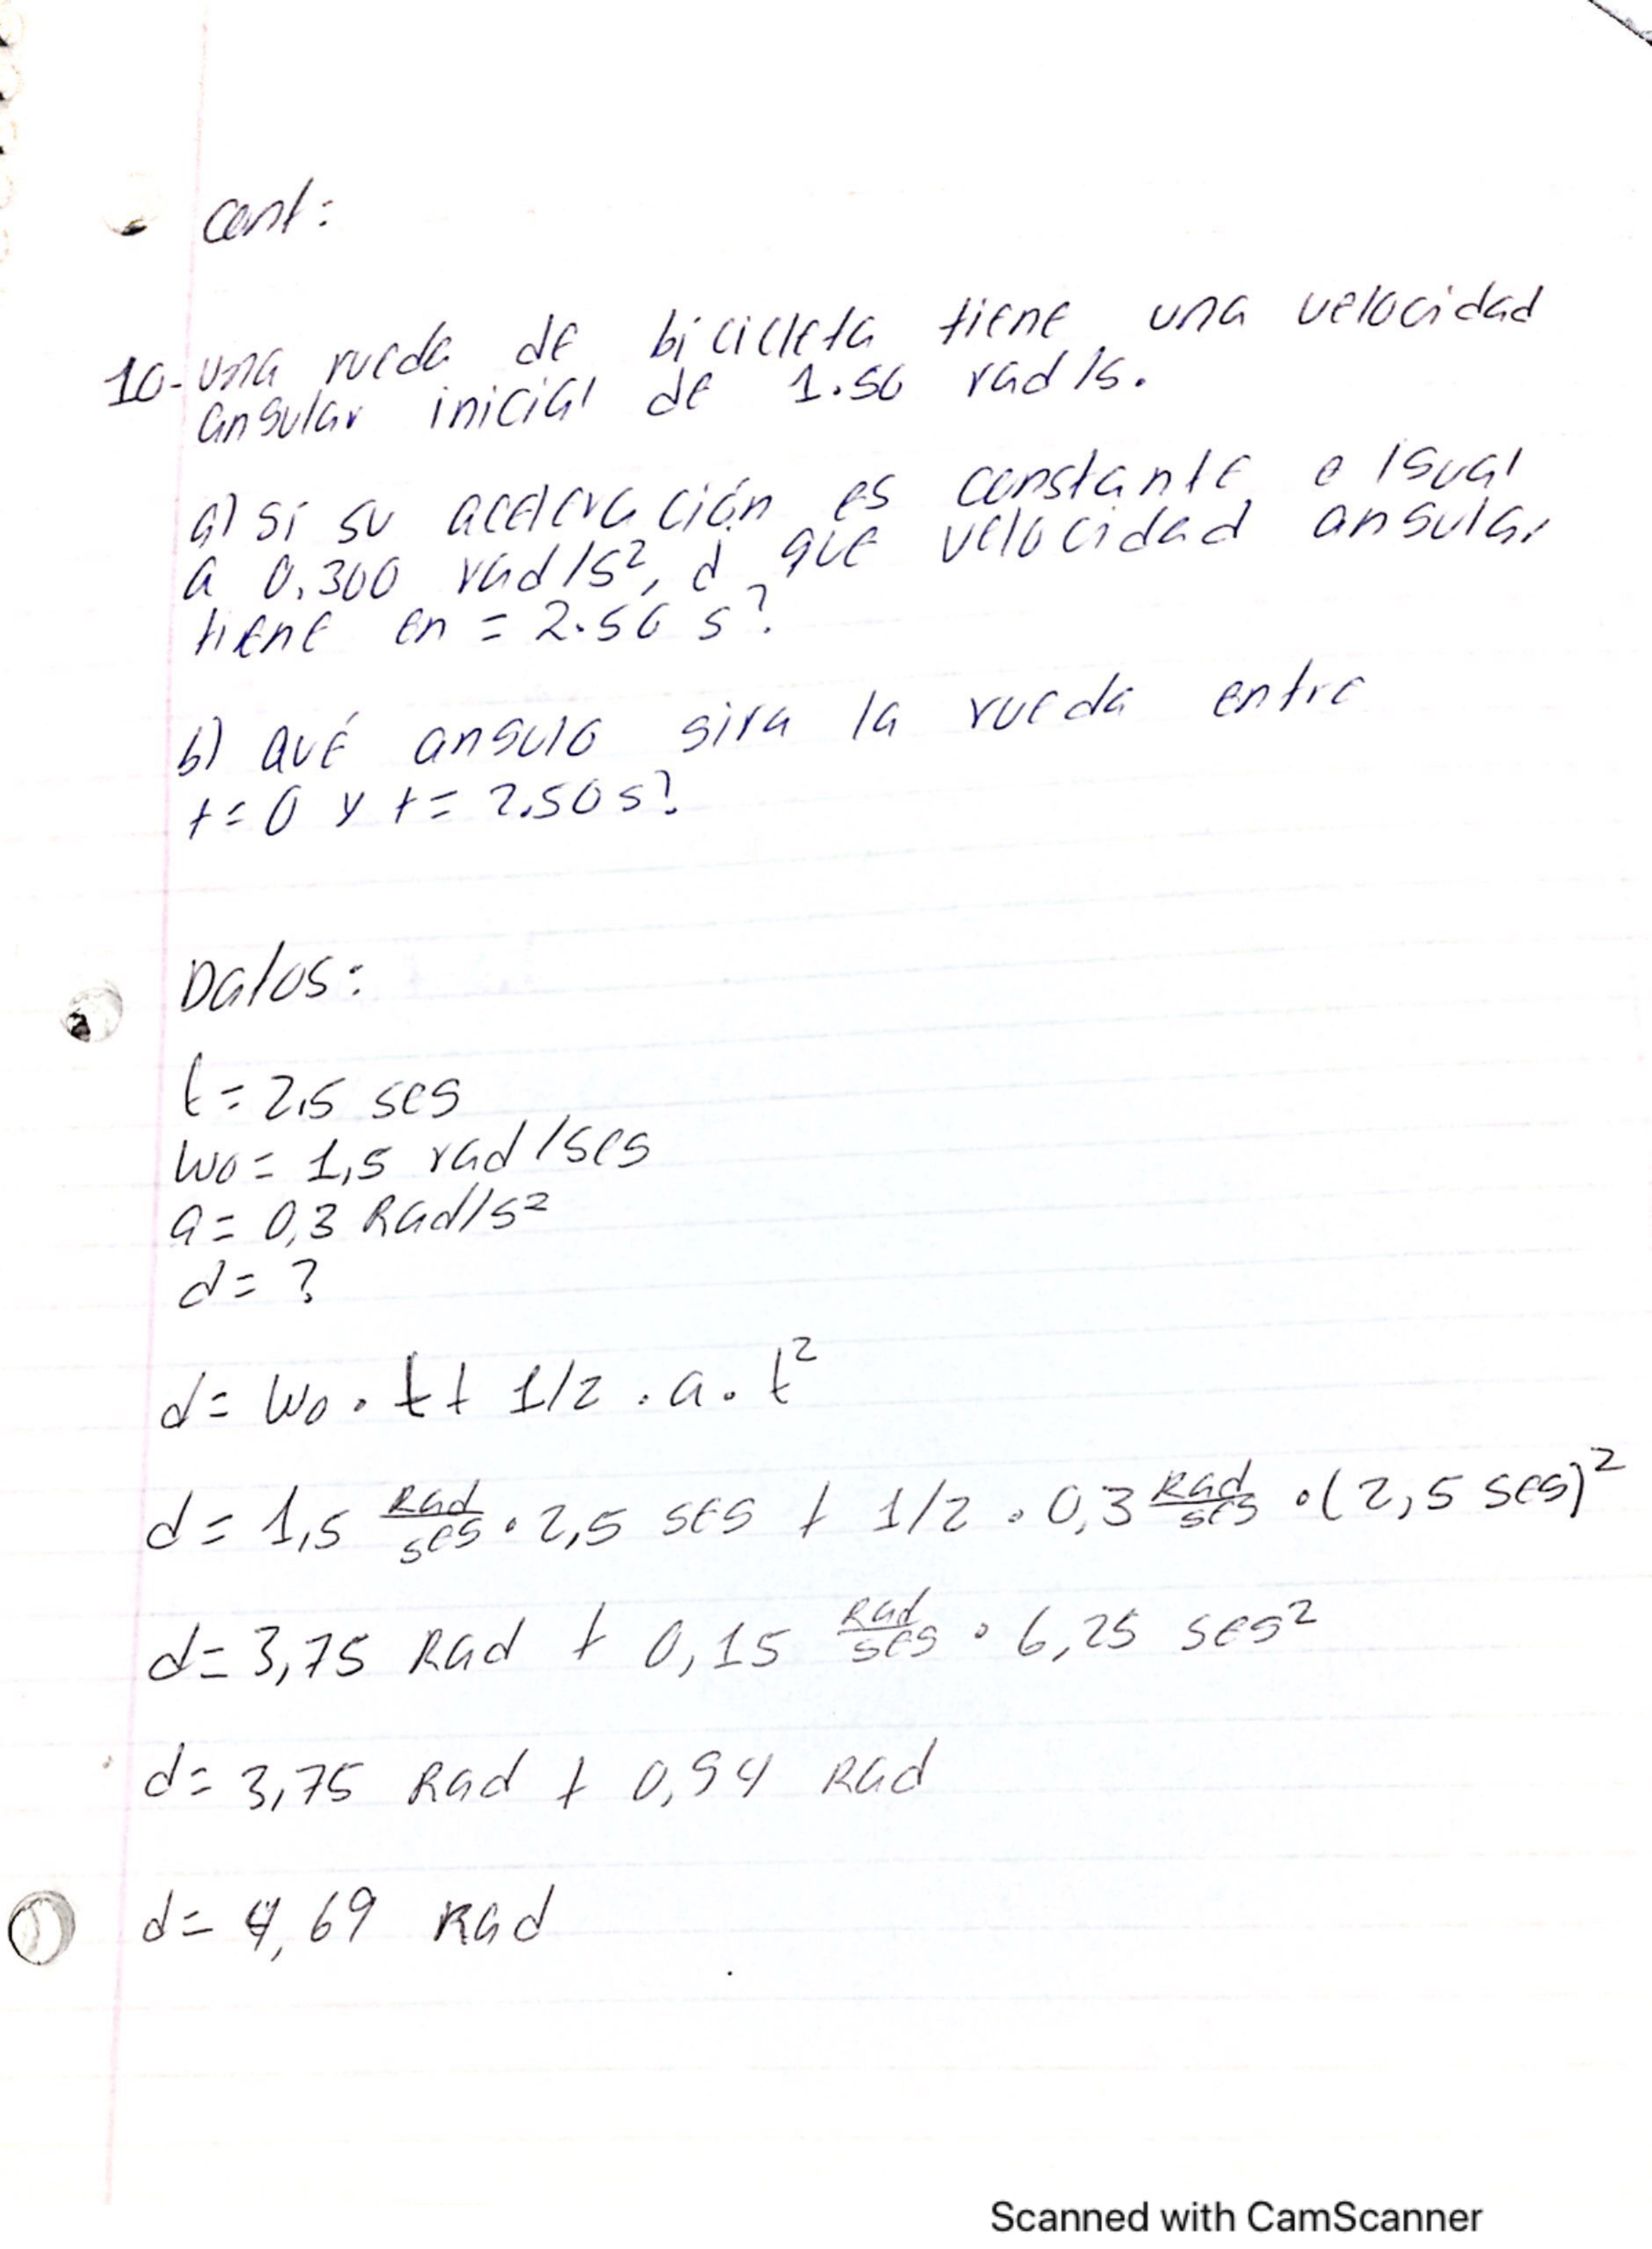 Cont:
10- una rueda de bicicleta tiene una velocidad
angular inicial de 1.50 rad/s.
a) si su aceleración es constante e igual
a 0.300 rad/s², ¿ que velocidad angular
tiene en = 2.50 s?
b) qué angulo gira la rueda entre
t=0 y t= 2.50s?
Datos:
t= 2,5 seg
wo= 1,5 rad/seg
a= 0,3 Rad/s²
d= ?
d= wo · t + 1/2 · a · t²
d= 1,5 Rad/seg · 2,5 seg + 1/2 · 0,3 Rad/seg · (2,5 seg)²
d= 3,75 Rad + 0,15 Rad/seg · 6,25 seg²
d= 3,75 Rad + 0,94 Rad
d= 4,69 Rad
Scanned with CamScanner